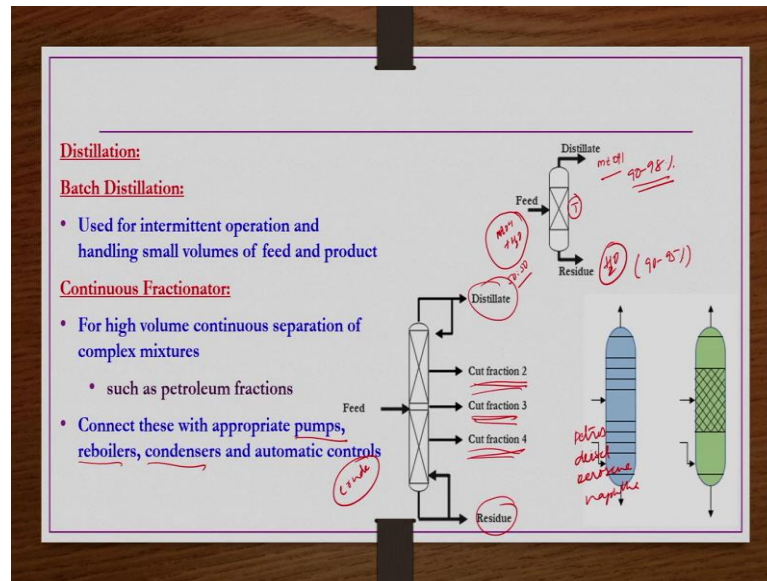 Distillation:
Batch Distillation:
• Used for intermittent operation and
handling small volumes of feed and product
Continuous Fractionator:
• For high volume continuous separation of
complex mixtures
• such as petroleum fractions
• Connect these with appropriate pumps,
reboilers, condensers and automatic controls
Distillate
90-98%
Feed
T
50:50
Residue
H2O
(90-95%)
Distillate
Cut fraction 2
Feed
Cut fraction 3
Cut fraction 4
Residue
crude
petrol
diesel
naphtha